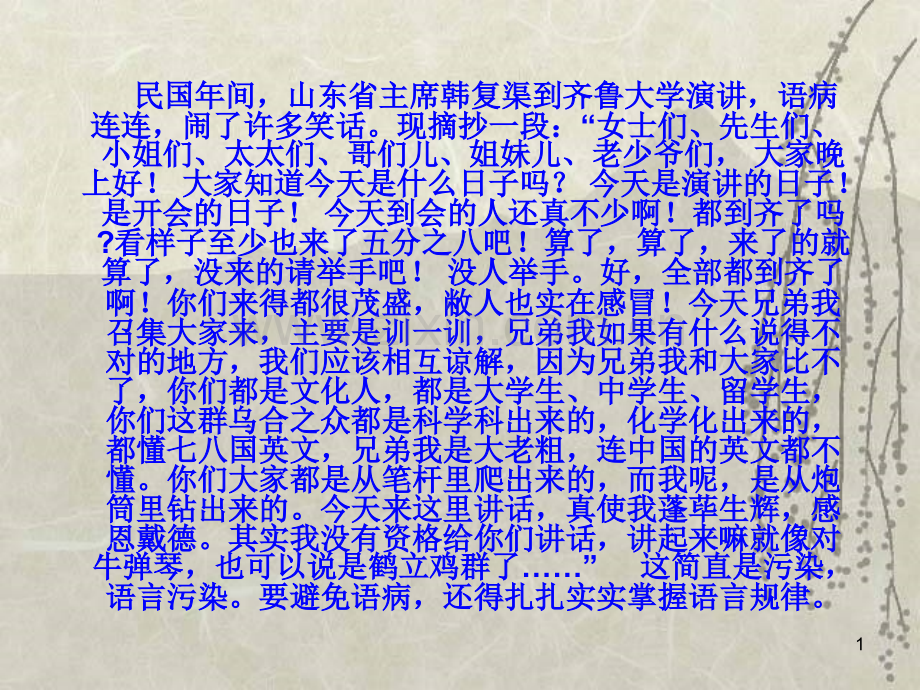 民国年间，山东省主席韩复渠到齐鲁大学演讲，语病
连连，闹了许多笑话。现摘抄一段：“女士们、先生们、
小姐们、太太们、哥们儿、姐妹儿、老少爷们， 大家晚
上好！ 大家知道今天是什么日子吗？ 今天是演讲的日子！
是开会的日子！ 今天到会的人还真不少啊！都到齐了吗
?看样子至少也来了五分之八吧！算了，算了，来了的就
算了，没来的请举手吧！ 没人举手。好，全部都到齐了
啊！你们来得都很茂盛，敝人也实在感冒！今天兄弟我
召集大家来，主要是训一训，兄弟我如果有什么说得不
对的地方，我们应该相互谅解，因为兄弟我和大家比不
了，你们都是文化人，都是大学生、中学生、留学生，
你们这群乌合之众都是科学科出来的，化学化出来的，
都懂七八国英文，兄弟我是大老粗，连中国的英文都不
懂。你们大家都是从笔杆里爬出来的，而我呢，是从炮
筒里钻出来的。今天来这里讲话，真使我蓬荜生辉，感
恩戴德。其实我没有资格给你们讲话，讲起来嘛就像对
牛弹琴，也可以说是鹤立鸡群了……” 这简直是污染，
语言污染。要避免语病，还得扎扎实实掌握语言规律。
1